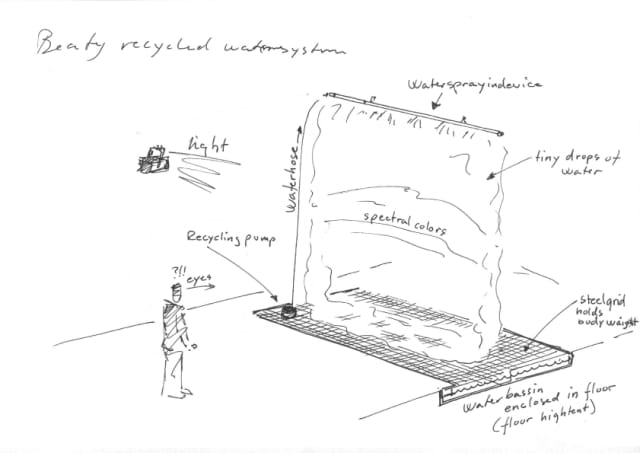 Beaty recycled watersystem
Watersprayindevice
light
Waterhose
tiny drops of
water
spectral colors
Recycling pump
?!!
eyes
steelgrid
holds
budy weight
Waterbassin
enclosed in floor
(floor hightent)